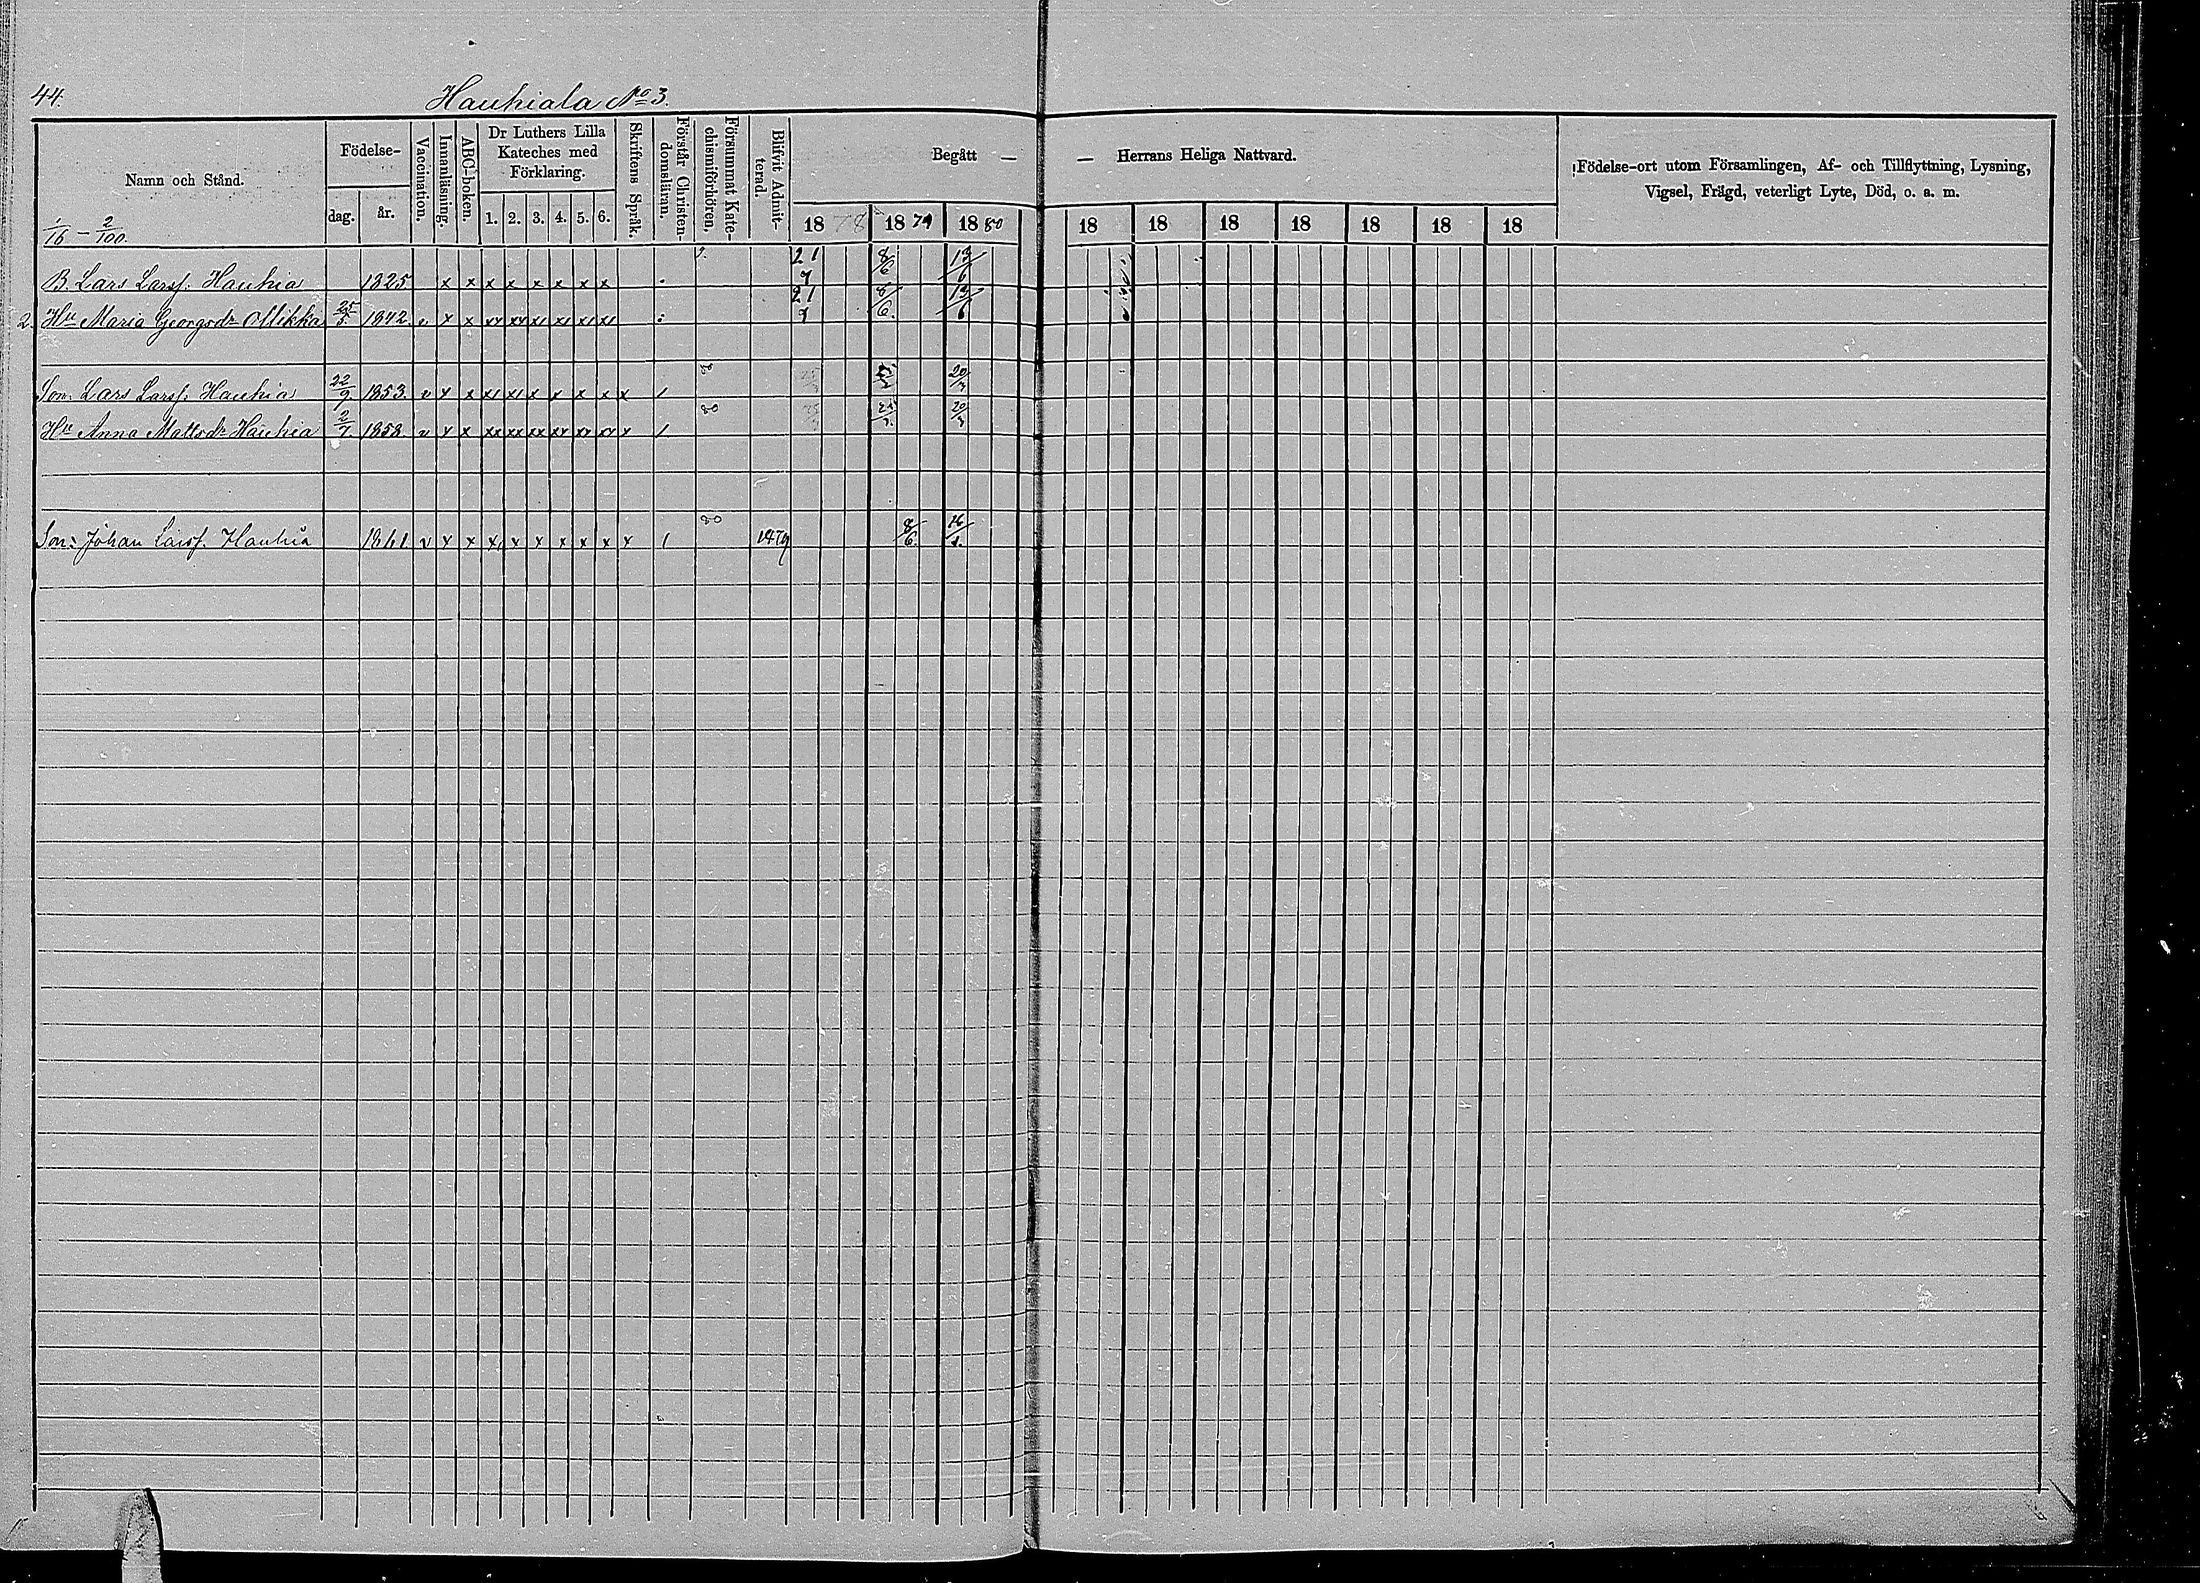 44.
Hauhiala No 3.
Namn och Stånd.
Födelse-
dag.
år.
Vaccination.
Innanläsning.
ABC-boken.
Dr Luthers Lilla
Kateches med
Förklaring.
1. 2. 3. 4. 5. 6.
Skriftens Språk.
Förstår Christen-
domsläran,
Försummat Kate-
chismiförhören,
Blifvit Admit-
terad.
Begått —
— Herrans Heliga Nattvard.
18 78 18 79 18 80 18 18 18 18 18 18 18
Födelse-ort utom Församlingen, Af- och Tillflyttning, Lysning,
Vigsel, Frägd, veterligt Lyte, Död, o. a. m.
1/16 — 2/100.
B. Lars Larsf. Hauhia 1825 x x x x x x x x 21/7 8/6 13/6
2. Hu Maria Georgsdr Mikka 25/5 1842 v x x xx xx x1 x1 x1 x1 21/7 8/6. 13/6
Son: Lars Larsf. Hauhia 22/9 1853. v x x x1 x1 x x x x x / 80 20/3
Hu Anna Mattsdr Hauhia 2/7 1858. v x x xx xx xx xx xx x / 80 25/3 20/3
Son: Johan Larsf. Hauhia 1861 v x x x x x x x x x / 80 1879 8/6. 16/